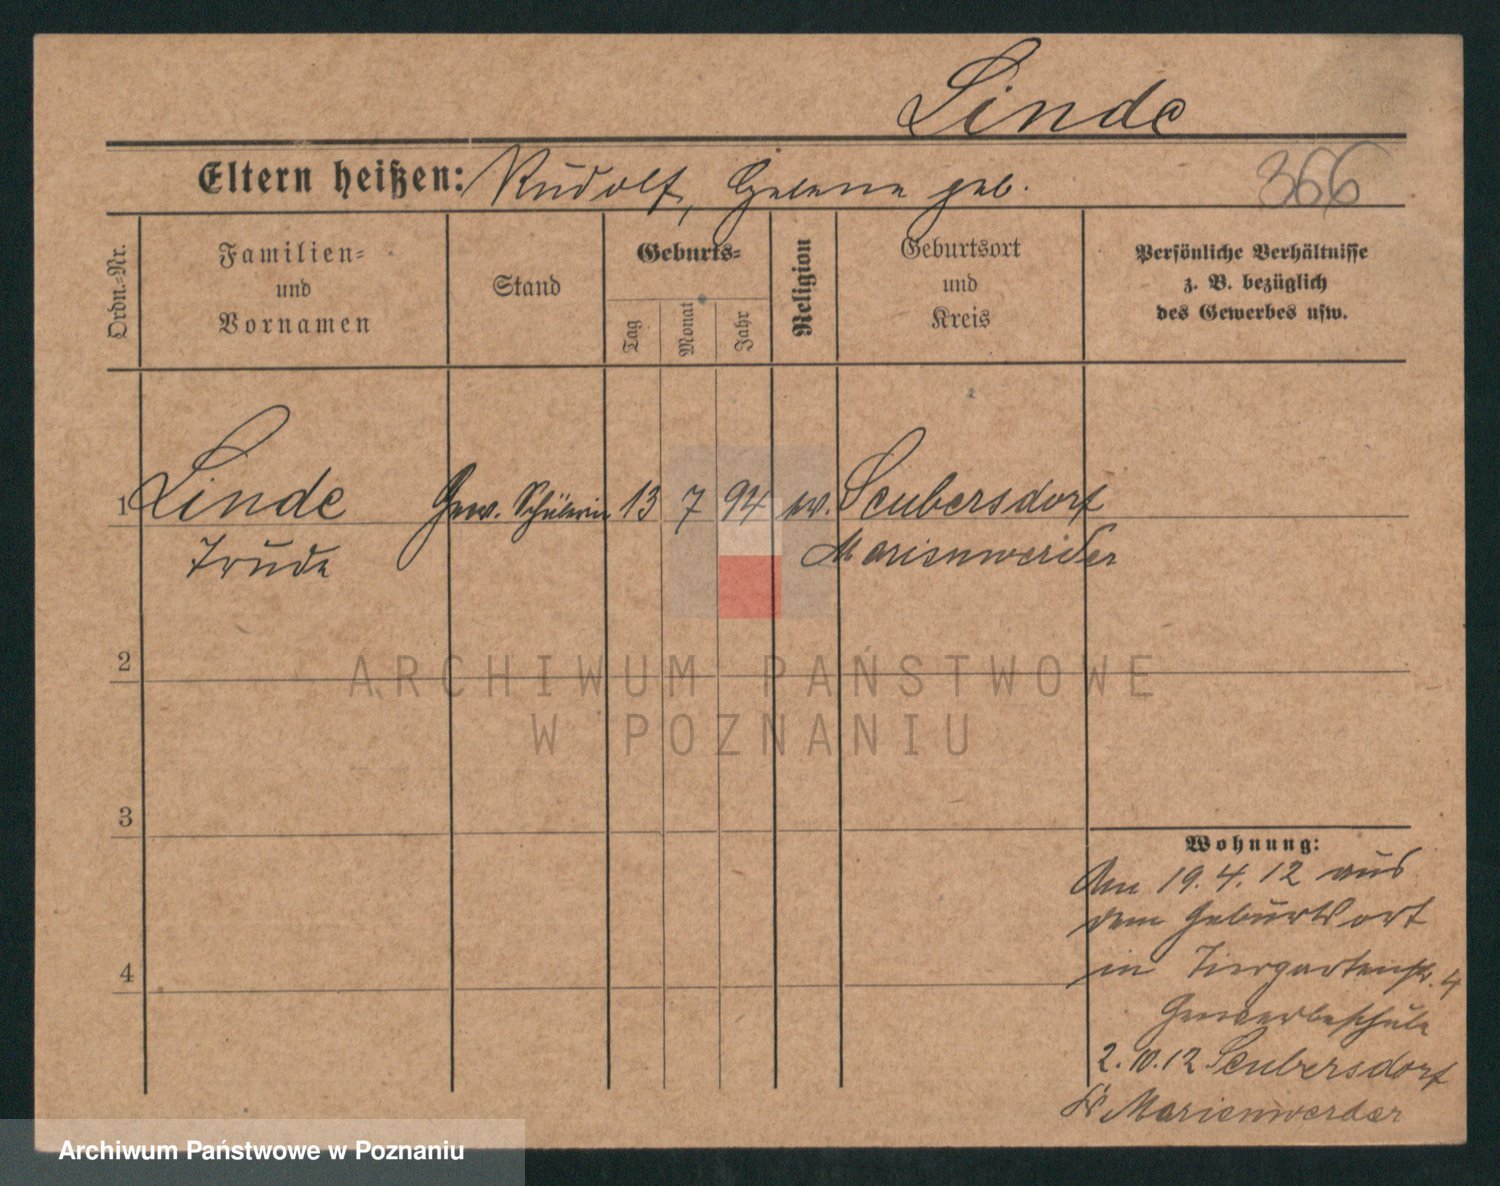 Linde
Eltern heißen: Rudolf, Helene geb.
366
Ordn.-Nr.
Familien-
und
Vornamen
Stand
Geburts-
Tag
Monat
Jahr
Religion
Geburtsort
und
Kreis
Persönliche Verhältnisse
z. B. bezüglich
des Gewerbes usw.
1 Linde Gew. Schülerin 13 7 94 ev. Seubersdorf
Trude Marienwerder
2
ARCHIWUM PAŃSTWOWE
W POZNANIU
3
Wohnung:
Am 19.4.12 aus
dem Geburtsort
in Tiergartenstr. 4
4
Gewerbeschule
2.10.12 Seubersdorf
Kr Marienwerder
Archiwum Państwowe w Poznaniu